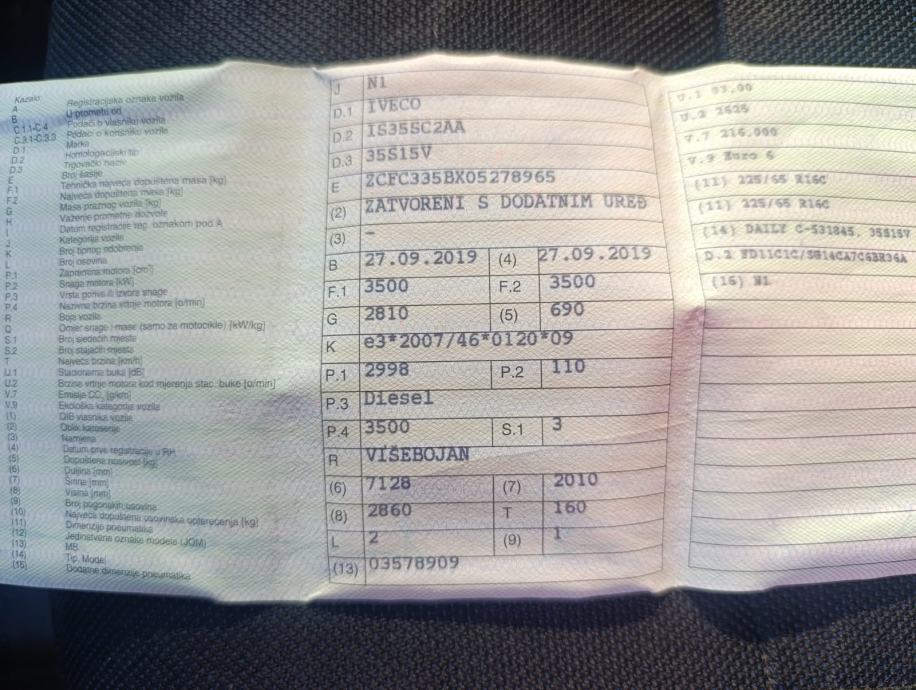 Kazalo:
A Registracijska oznaka vozila
B U prometu od
C.1.1-C.4 Podaci o vlasniku vozila
C.3.1-C.3.3 Podaci o korisniku vozila
D.1 Marka
D.2 Homologacijski tip
D.3 Trgovački naziv
E Broj šasije
F.1 Tehnička najveća dopuštena masa [kg]
F.2 Najveća dopuštena masa [kg]
G Masa praznog vozila [kg]
H Važenje prometne dozvole
I Datum registracije reg. oznakom pod A
J Kategorija vozila
K Broj tipnog odobrenja
L Broj osovina
P.1 Zapremina motora [cm³]
P.2 Snaga motora [kW]
P.3 Vrsta goriva ili izvora snage
P.4 Nazivna brzina vrtnje motora [o/min]
R Boja vozila
Q Omjer snage i mase (samo za motocikle) [kW/kg]
S.1 Broj sjedećih mjesta
S.2 Broj stajaćih mjesta
T Najveća brzina [km/h]
U.1 Stacionarna buka [dB]
U.2 Brzina vrtnje motora kod mjerenja stac. buke [o/min]
V.7 Emisija CO₂ [g/km]
V.9 Ekološka kategorija vozila
(1) OIB vlasnika vozila
(2) Oblik karoserije
(3) Namjena
(4) Datum prve registracije u RH
(5) Dopuštena nosivost [kg]
(6) Duljina [mm]
(7) Širina [mm]
(8) Visina [mm]
(9) Broj pogonskih osovina
(10) Najveća dopuštena osovinska opterećenja [kg]
(11) Dimenzije pneumatika
(12) Jedinstvena oznaka modela (JOM)
(13) MB
(14) Tip, Model
(15) Dodatne dimenzije pneumatika
J N1
D.1 IVECO
D.2 IS35SC2AA
D.3 35S15V
E ZCFC335BX05278965
(2) ZATVORENI S DODATNIM UREĐ
(3) –
B 27.09.2019 (4) 27.09.2019
F.1 3500 F.2 3500
G 2810 (5) 690
K e3*2007/46*0120*09
P.1 2998 P.2 110
P.3 Diesel
P.4 3500 S.1 3
R VIŠEBOJAN
(6) 7128 (7) 2010
(8) 2860 T 160
L 2 (9) 1
(13) 03578909
U.2 2625
V.7 216.000
V.9 Euro 6
(11) 225/65 R16C
(11) 225/65 R16C
(14) DAILY C-531845, 35S15V
D.2
(16) N1